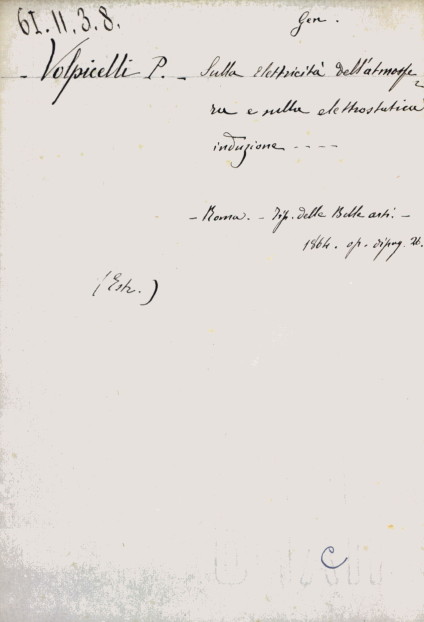 61.11.3.8.
Gen.
- Volpicelli P. - Sulla elettricità dell'atmosfe
ra e nulla elettrostatica
induzione ----
- Roma. - Tip. delle Belle arti. -
1864. op. di pag. 26.
(Estr.)
C